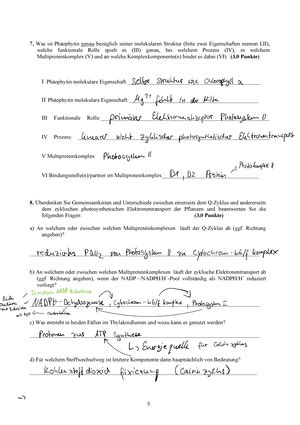 7. Was ist Phäophytin genau bezüglich seiner molekularen Struktur (bitte zwei Eigenschaften nennen I,II),
welche funktionale Rolle spielt es (III) genau, bei welchem Prozess (IV), in welchem
Multiproteinkomplex (V) und an welche Komplexkomponente(n) bindet es dabei (VI) (3,0 Punkte)
I Phäophytin molekulare Eigenschaft selbe Struktur wie Chlorophyll a
II Phäophytin molekulare Eigenschaft Mg2+ fehlt in der Mitte
III Funktionale Rolle primärer Elektronenakzeptor Photosystem II
IV Prozess: linearer nicht zyklischer photosynthetischer Elektronentransport
V Multiproteinkomplex: Photosystem II
VI Bindungsstelle(n)/partner im Multiproteinkomplex D1, D2 Protein
8. Überdenken Sie Gemeinsamkeiten und Unterschiede zwischen einerseits dem Q-Zyklus und andererseits
dem zyklischen photosynthetischen Elektronentransport der Pflanzen und beantworten Sie die
folgenden Fragen (3,0 Punkte)
a) An welchen oder zwischen welchen Multiproteinkomplexen läuft der Q-Zyklus ab (ggf. Richtung
angeben)?
reduziertes von Photosystem II zu Cytochrom-b6/f komplex
b) An welchen oder zwischen welchen Multiproteinkomplexen läuft der zyklische Elektronentransport ab
(ggf. Richtung angeben), wenn der NADP - NADPH/H+ Pool vollständig als NADPH/H+ reduziert
vorliegt?
NADPH-Dehydrogenase, Cytochrom-b6/f Komplex, Photosystem I
c) Was entsteht in beiden Fällen im Thylakoidlumen und wozu kann es genutzt werden?
Protonen zur ATP Synthese
↳ Energiequelle für Calvin zyklus
d) Für welchen Stoffwechselweg ist letztere Komponente dann hauptsächlich von Bedeutung?
Kohlenstoffdioxid fixierung (Calvinzyklus)
5